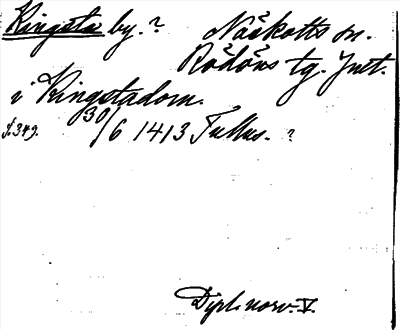 Kingsta by.? Näskotts sn.
Rödöns tg. Jmt.
i Kingstadom.
s. 349. 30/6 1413 Tullus. ?
Dipl. norv. V.